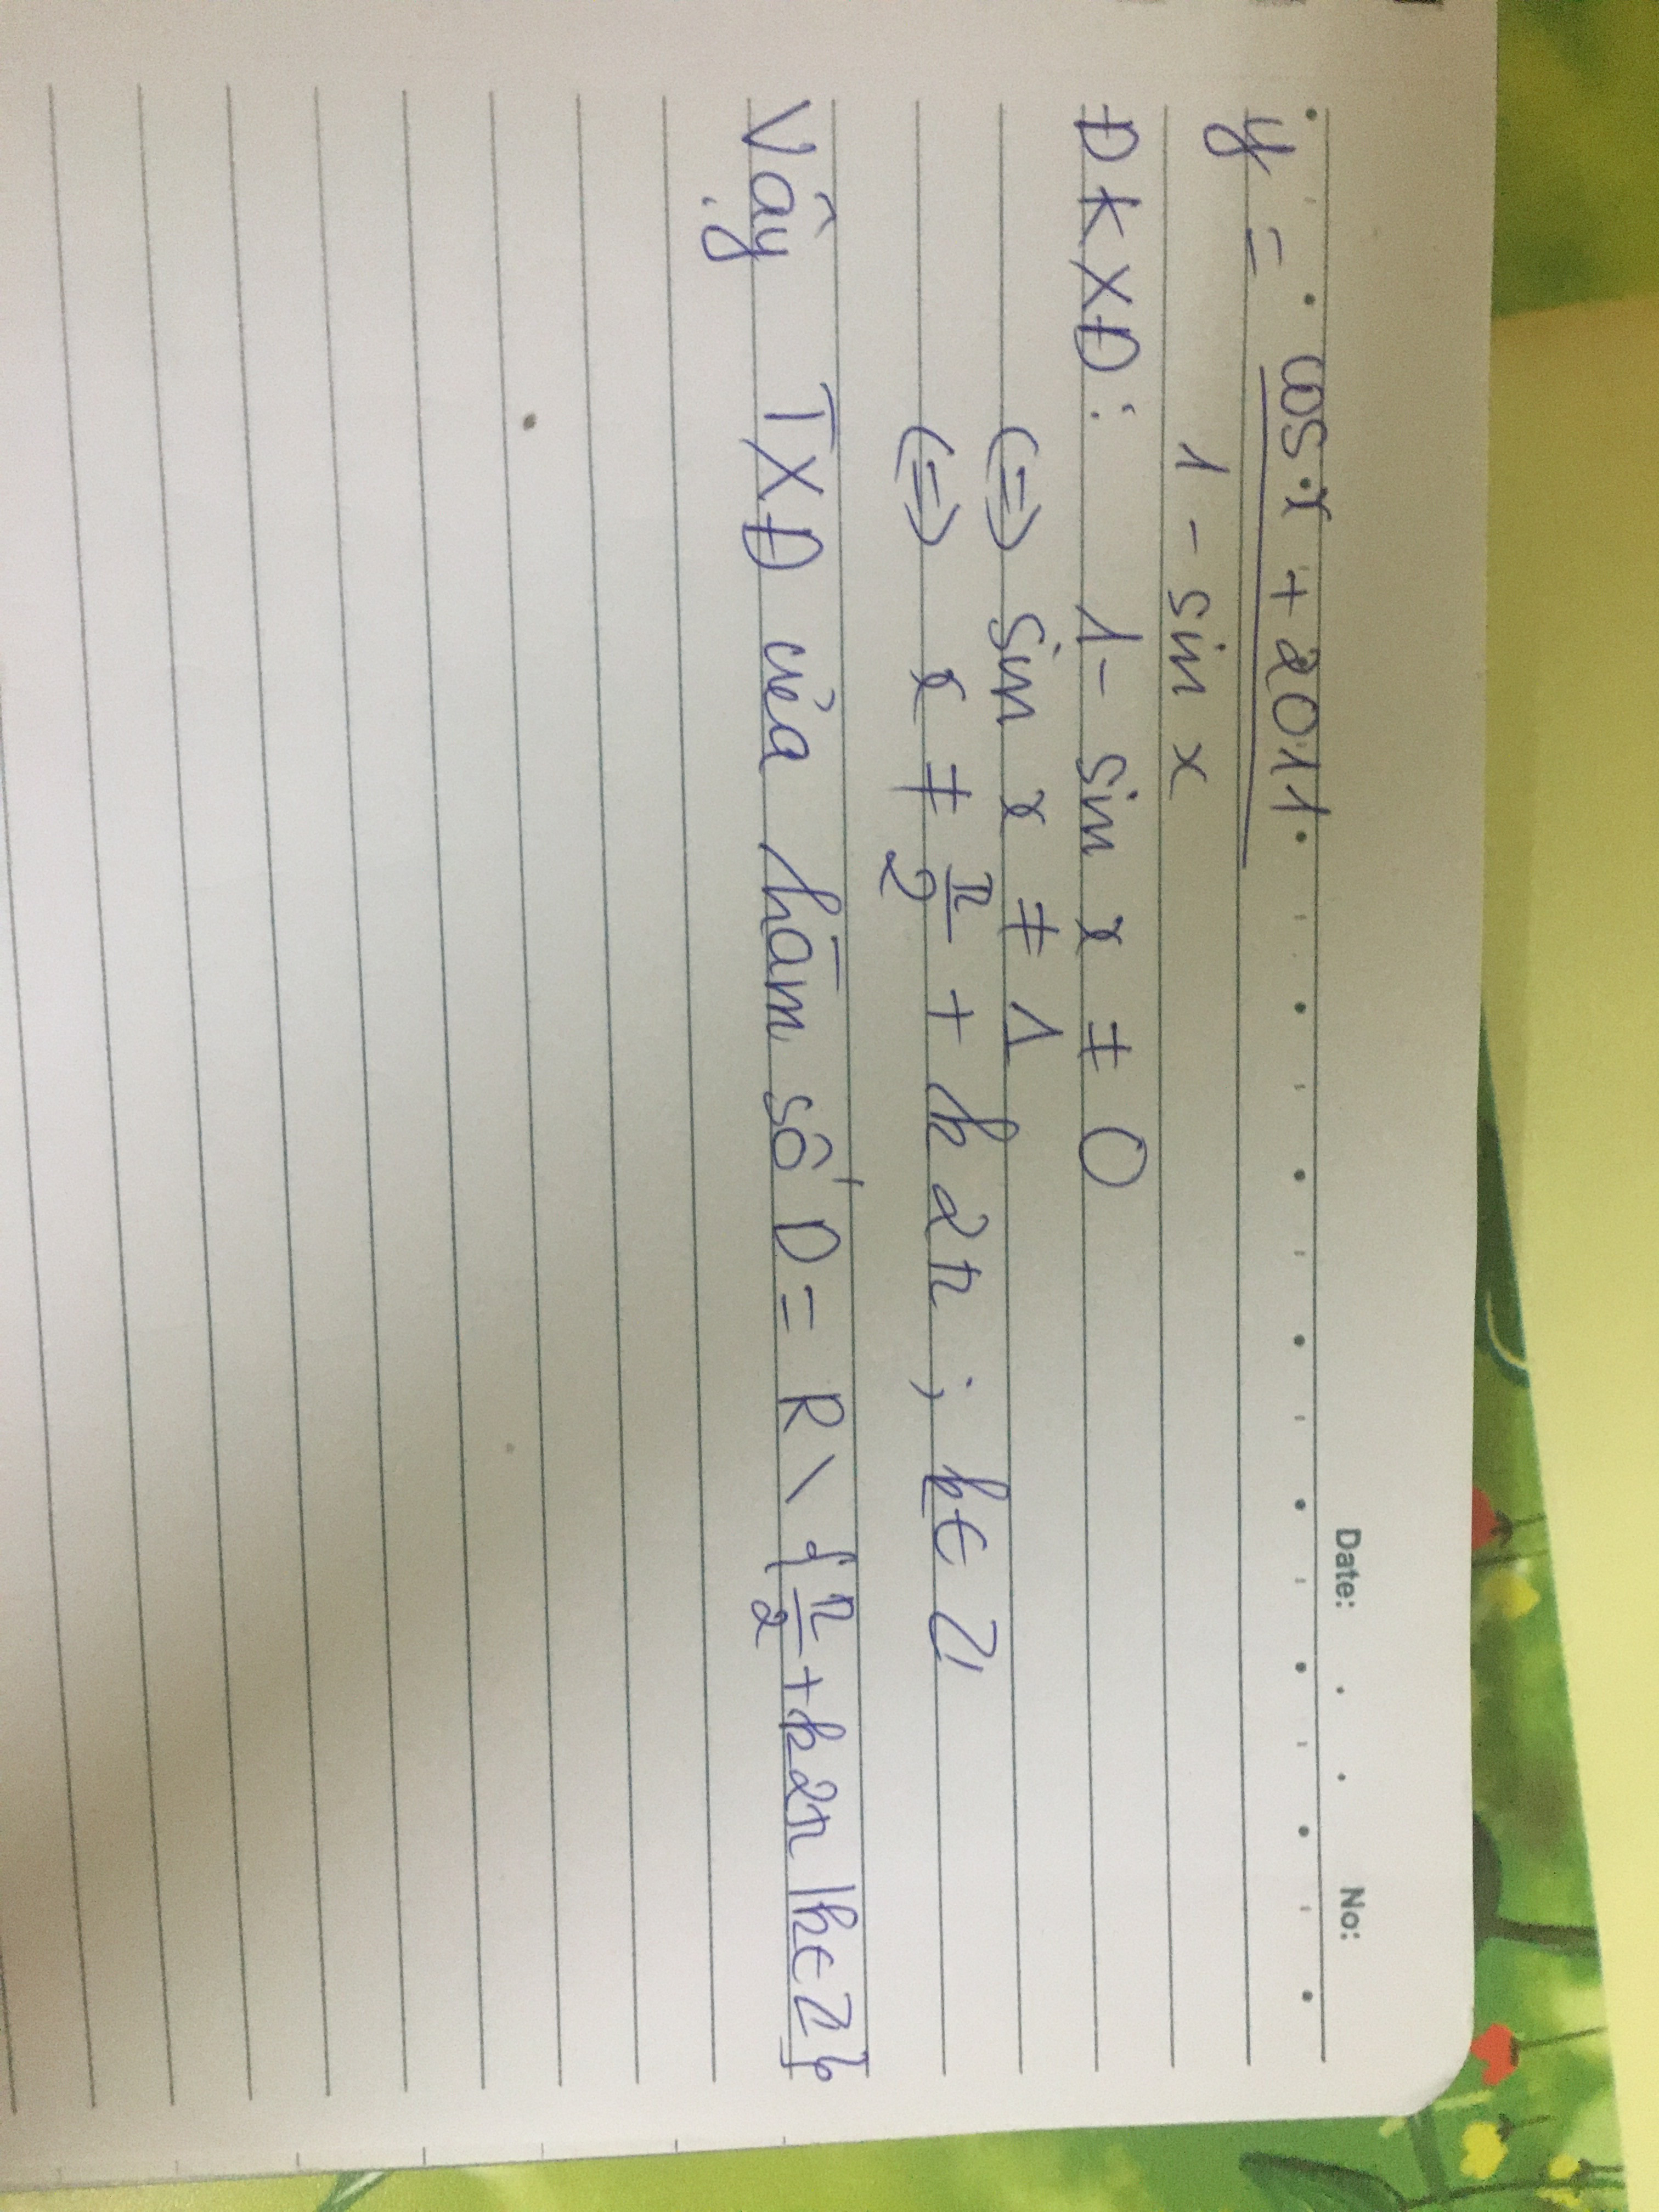 Date: No:
y = cos x + 2011
1 - sin x
ĐKXĐ: 1 - sin x ≠ 0
(=) sin x ≠ 1
(=) x ≠ π/2 + k2π ; k ∈ Z
Vậy TXĐ của hàm số D = R \ {π/2 + k2π | k ∈ Z}